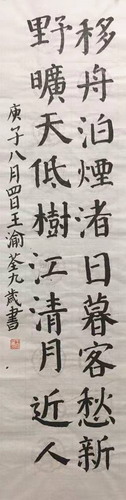 移舟泊煙渚日暮客愁新
野曠天低樹江清月近人
庚子八月四日王渝荃九歲書